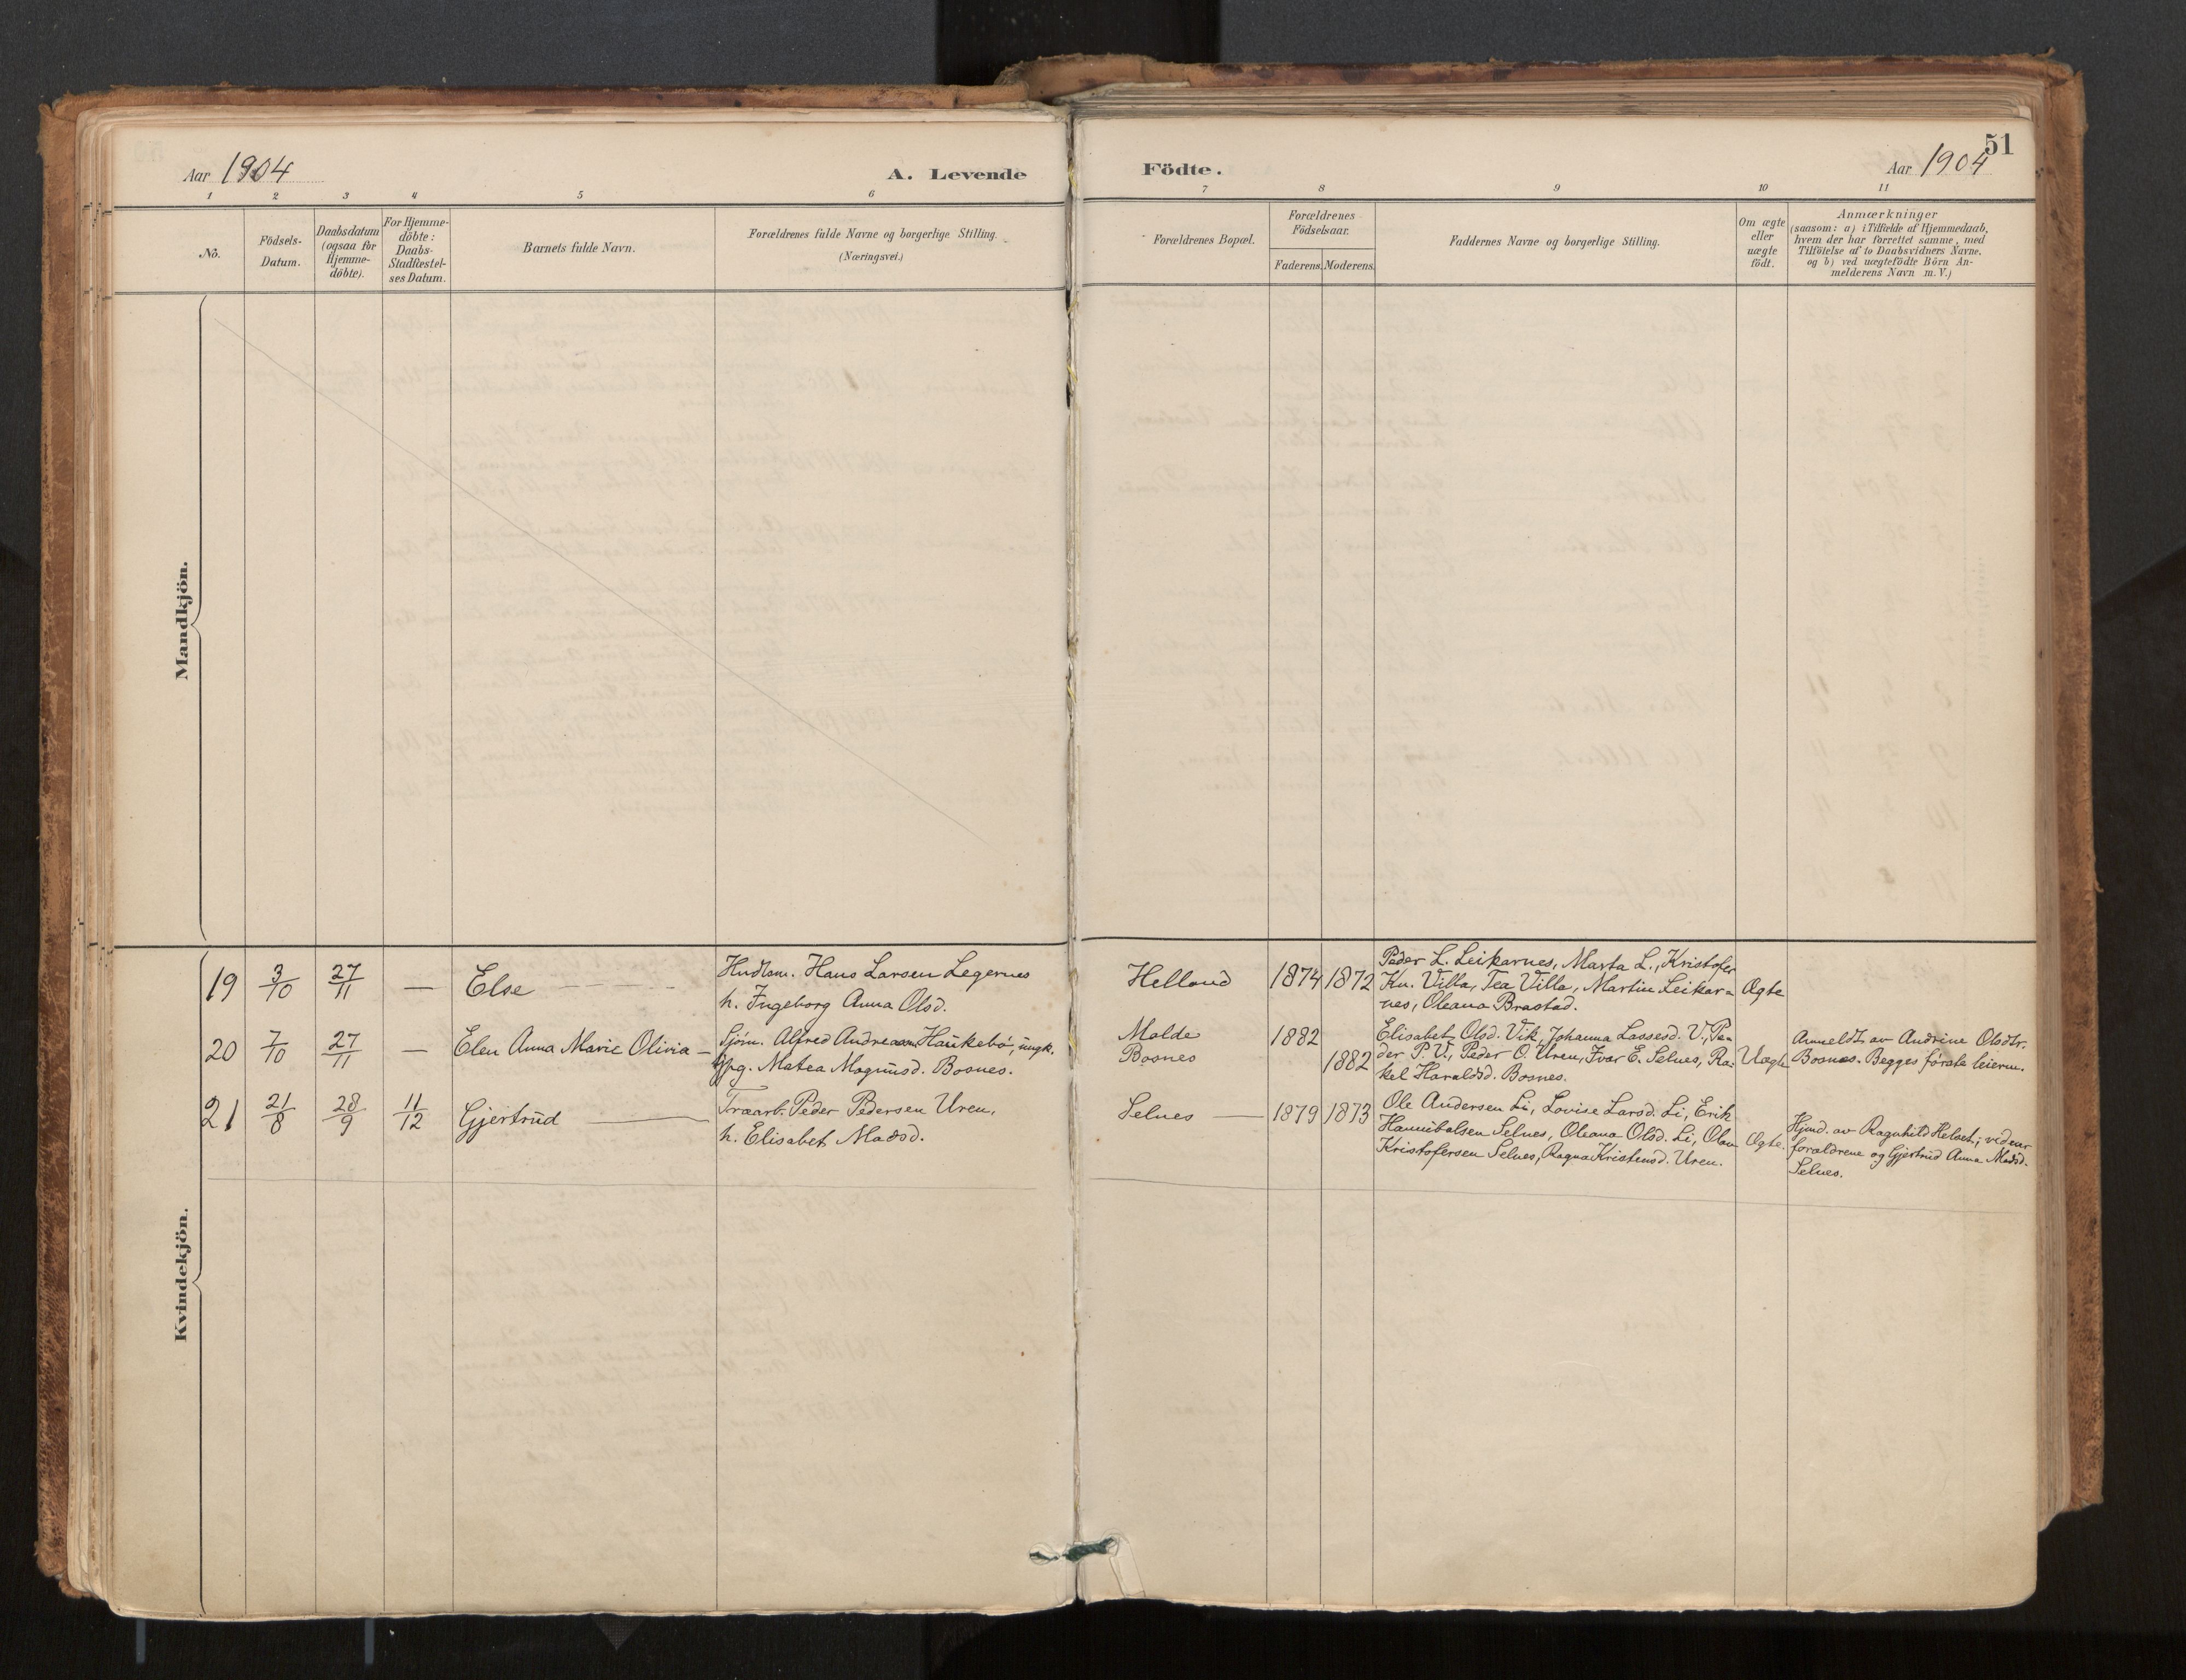 Aar 1904
A. Levende
Födte.
51
Aar 1904
1 2 3 4 5 6 7 8 9 10 11
No.
Födsels-
Datum.
Daabsdatum
(ogsaa for
Hjemme-
döbte).
For Hjemme-
döbte:
Daabs-
Stadfæstel-
ses Datum.
Barnets fulde Navn.
Forældrenes fulde Navne og borgerlige Stilling.
(Næringsvei.)
Forældrenes Bopæl.
Forældrenes
Födselsaar.
Faderens. Moderens.
Faddernes Navne og borgerlige Stilling.
Om ægte
eller
uægte
födt.
Anmærkninger
(saasom: a) i Tilfælde af Hjemmedaab,
hvem der har forrettet samme, med
Tilföielse af to Daabsvidners Navne,
og b) ved uægtefödte Börn An-
melderens Navn m. V.)
Mandkjön.
Kvindekjön.
19 3/10 27/11 — Else
Hans Larsen Legernes
h. Ingeborg Anna Olsd.
Helland 1874 1872
Peder L. Leikarnes, Marta L., Kristofer
Kn. Villa, Tea Villa, Martin Leikar-
nes, Oleana Brastad.
Ægte
20 7/10 27/11 — Elen Anna Marie Olivia —
Sjöm. Alfred Andreasen Haukebö, ungk.
Pg. Matea Magnusd. Bosnes.
Molde 1882
Bosnes 1882
Elisabet Olsd. Vik, Johanna Lassesd. V., Pe-
der P. V., Peder O. Uren, Ivar E. Selnes, Ra-
kel Haraldsd. Bosnes.
Uægte
Anmeldt av Andrine Olsdtr.
Bosnes. Begges förste leierm.
21 21/8 28/9 11/12 Gjertrud
Træarb. Peder Pedersen Uren,
h. Elisabet Madsd.
Selnes — 1879 1873
Ole Andersen Li, Lovise Larsd. Li, Erik
Hannibalsen Selnes, Oleana Olsd. Li, Olav
Kristofersen Selnes, Ragna Kristensd. Uren.
Ægte.
Hjmd. av Ragnhild Helset; vidner
forældrene og Gjertrud Anna Madsd.
Selnes.